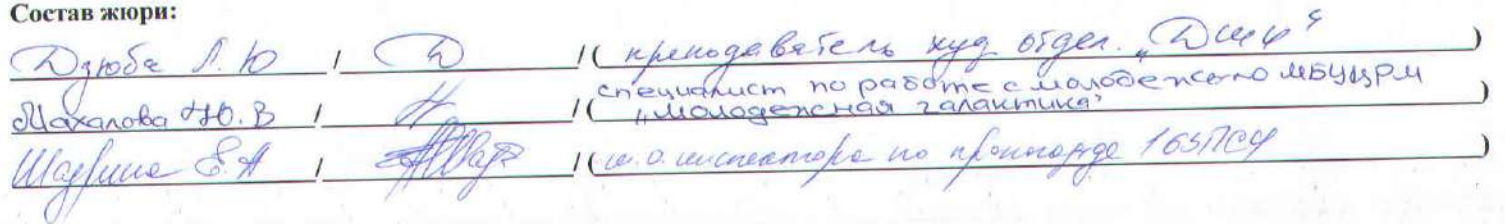 Состав жюри:
Дзюба Л. Ю / Д / ( преподаватель худ отдел. „ДШИ“ )
Махалова Ю. В / / ( специалист по работе с молодежью МБУ ЦРМ
„Молодежная галактика“ )
Е. А / / ( и. о. инспектора по 163 ПСЧ )